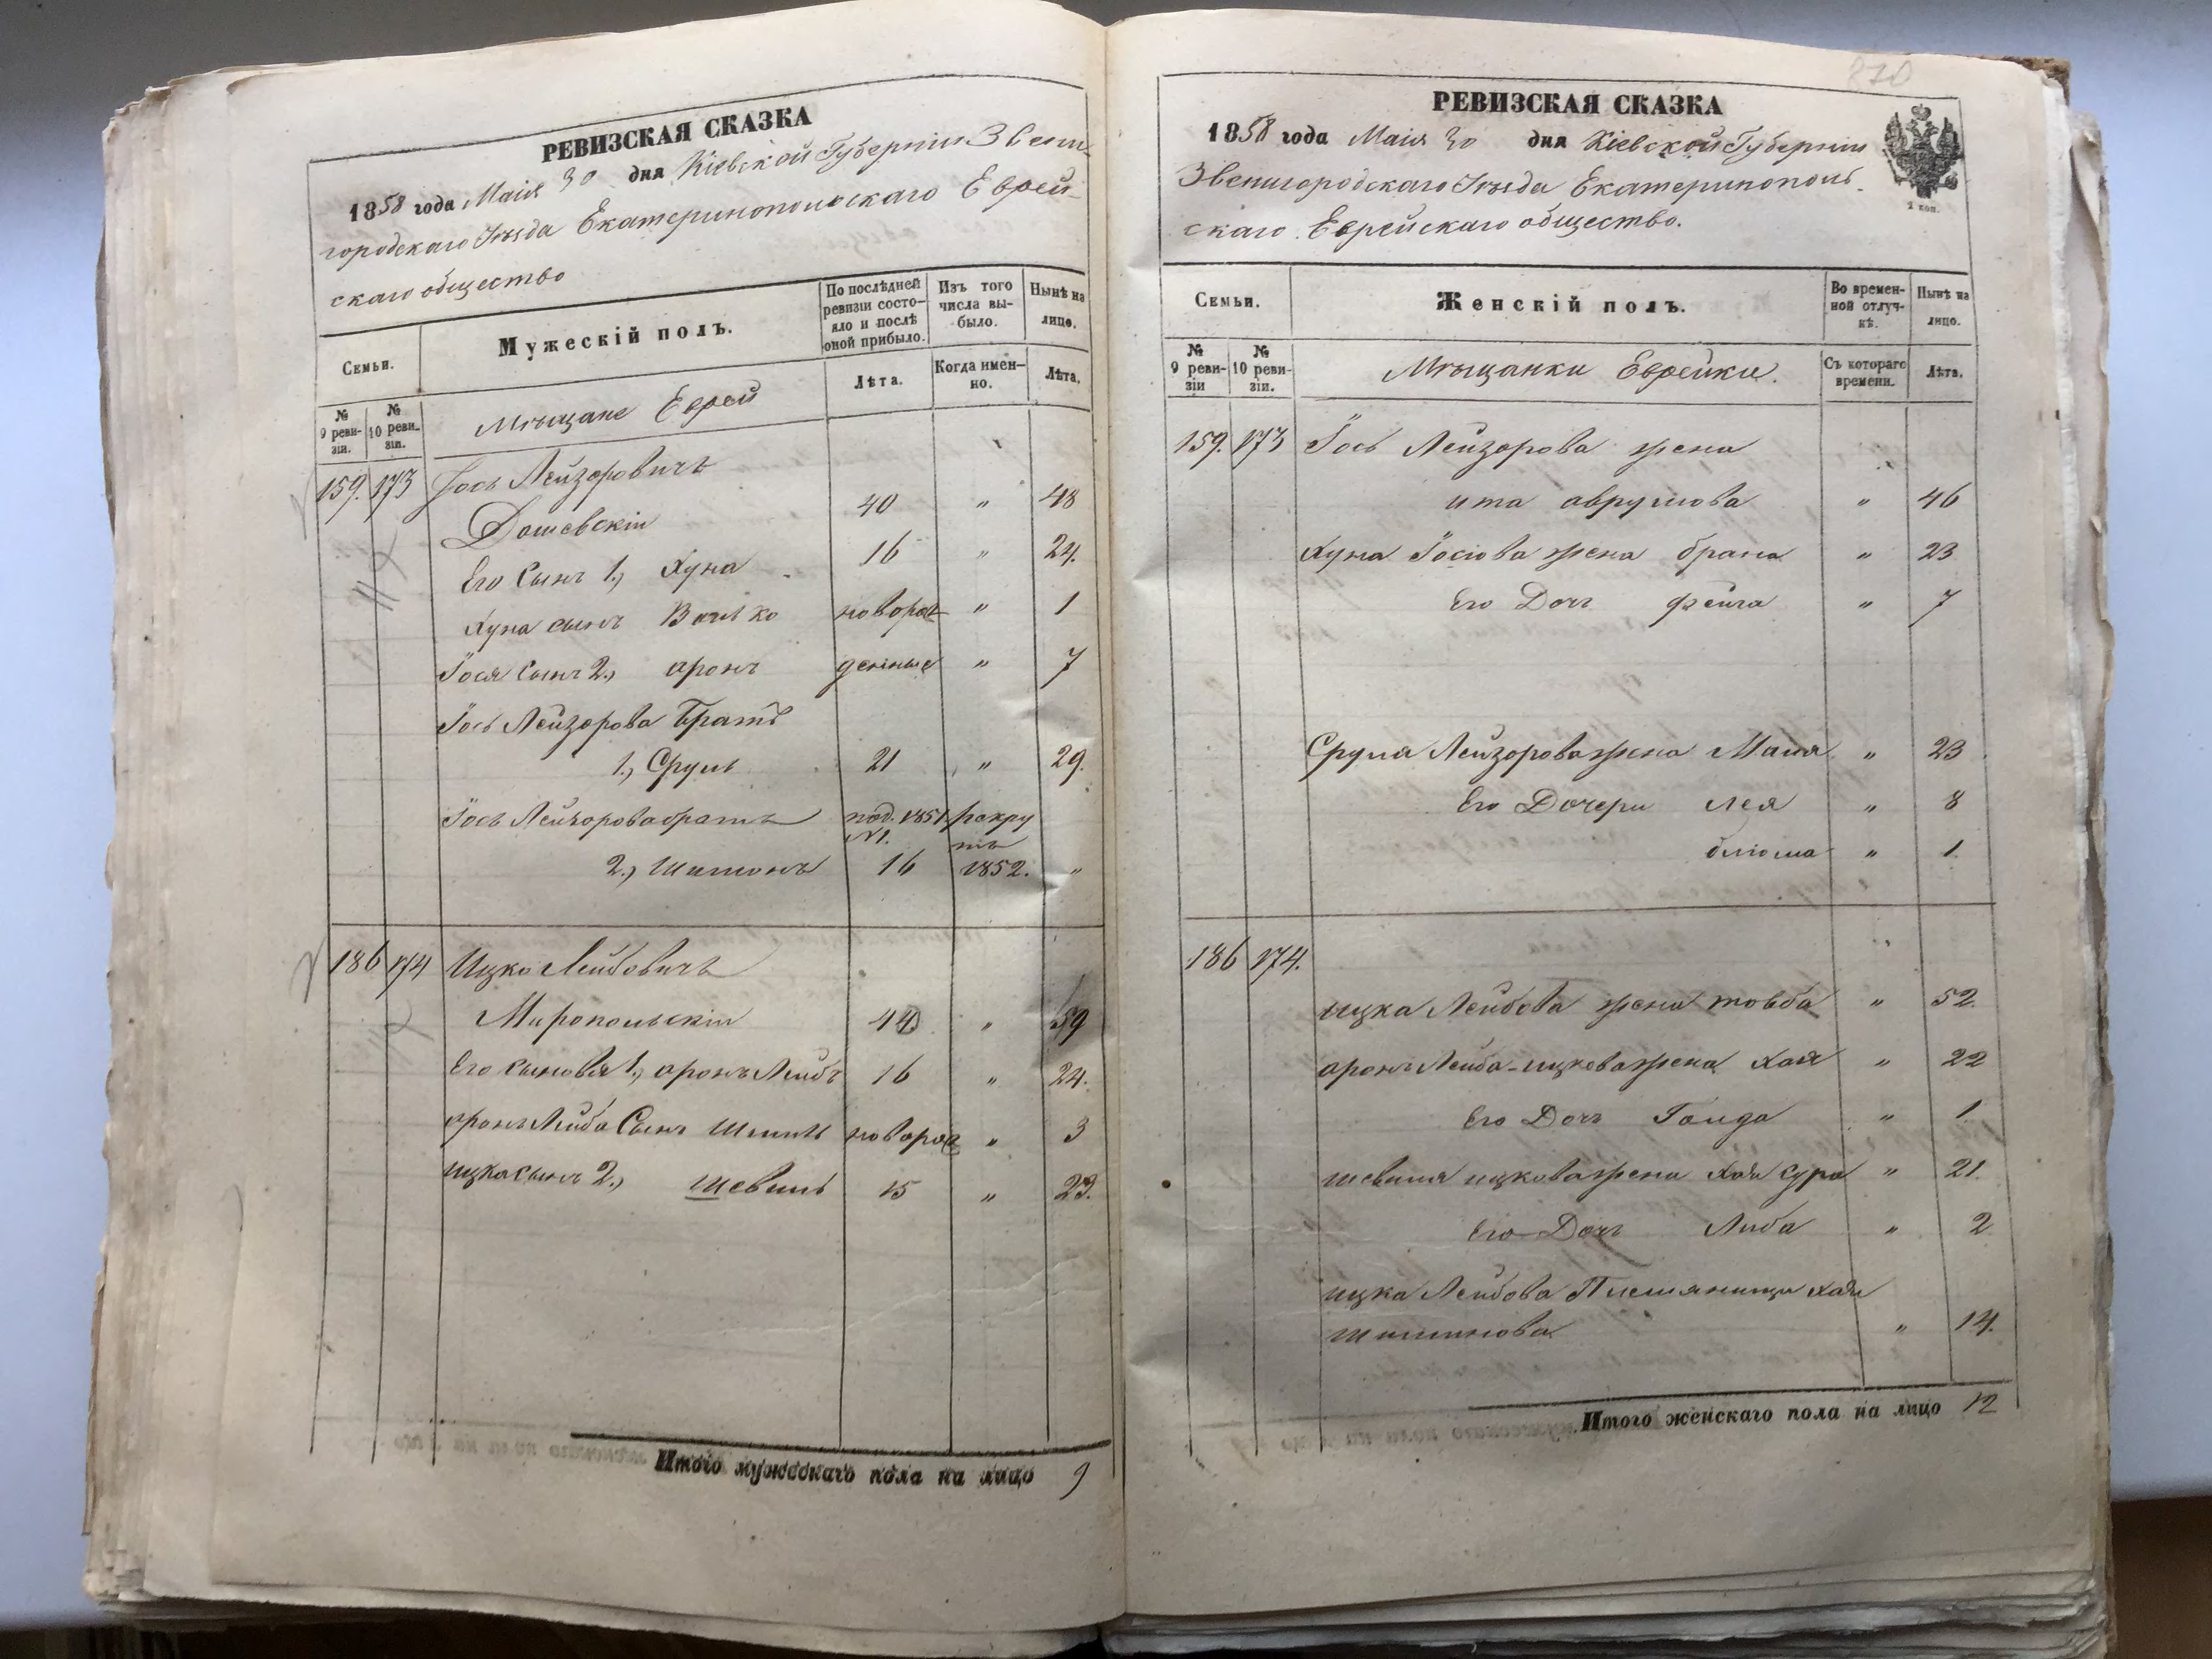 РЕВИЗСКАЯ СКАЗКА
1858 года Маія 30 дня Кіевской Губерніи Звени-
городскаго Уѣзда Екатеринопольскаго Еврей-
скаго общество
Семьи.
Мужескій полъ.
По послѣдней ревизіи состо-
яло и послѣ
оной прибыло.
Изъ того
числа вы-
было.
Нынѣ на
лицо.
№
9 реви-
зіи.
№
10 реви-
зіи.
Мѣщане Евреи
Лѣта.
Когда имен-
но.
Лѣта.
159. 173 Іось Лейзоровичъ
Дашевскій 40 " 48
Его Сынъ 1., Хуна 16 " 24.
Хуна сынъ Волько новорож " 1
Іося Сынъ 2., аронъ денные " 7
Іось Лейзорова Братъ
1., Сруль 21 " 29.
Іось Лейзорова братъ 1851 рекру
№1. тъ
2., Шимонъ 16 1852. "
186 174 Ицко Лейбовичъ
Миропольскій 44 " 59
Его сыновья 1., аронъ Лейбъ 16 " 24.
аронъ Лейба Сынъ Шмиль новорож " 3
ицка сынъ 2., Шевель 15 " 23.
Итого мужескаго пола на лицо 9
870
РЕВИЗСКАЯ СКАЗКА
1858 года Маія 30 дня Кіевской Губерніи
Звенигородскаго Уѣзда Екатеринополь-
скаго Еврейскаго общество.
2 коп.
Семьи.
Женскій полъ.
Во времен-
ной отлуч-
кѣ.
Нынѣ на
лицо.
№
9 реви-
зіи
№
10 реви-
зіи.
Мѣщанки Еврейки.
Съ котораго
времени.
Лѣта.
159. 173 Іось Лейзорова жена
ита аврумова " 46
Хуна Іосіова жена брана " 23
Его Дочь фейга " 7
Сруля Лейзорова жена Маня " 23
Его Дочери лея " 8
блюма " 1.
186 174.
ицка Лейбова жена товба " 52.
аронъ Лейба-ицкова жена хая " 22
Его Дочь Голда " 1.
шевеля ицкова жена хая сура " 21.
Его Дочь Либа " 2
ицка Лейбова Племянница хая
" 14.
Итого женскаго пола на лицо 12